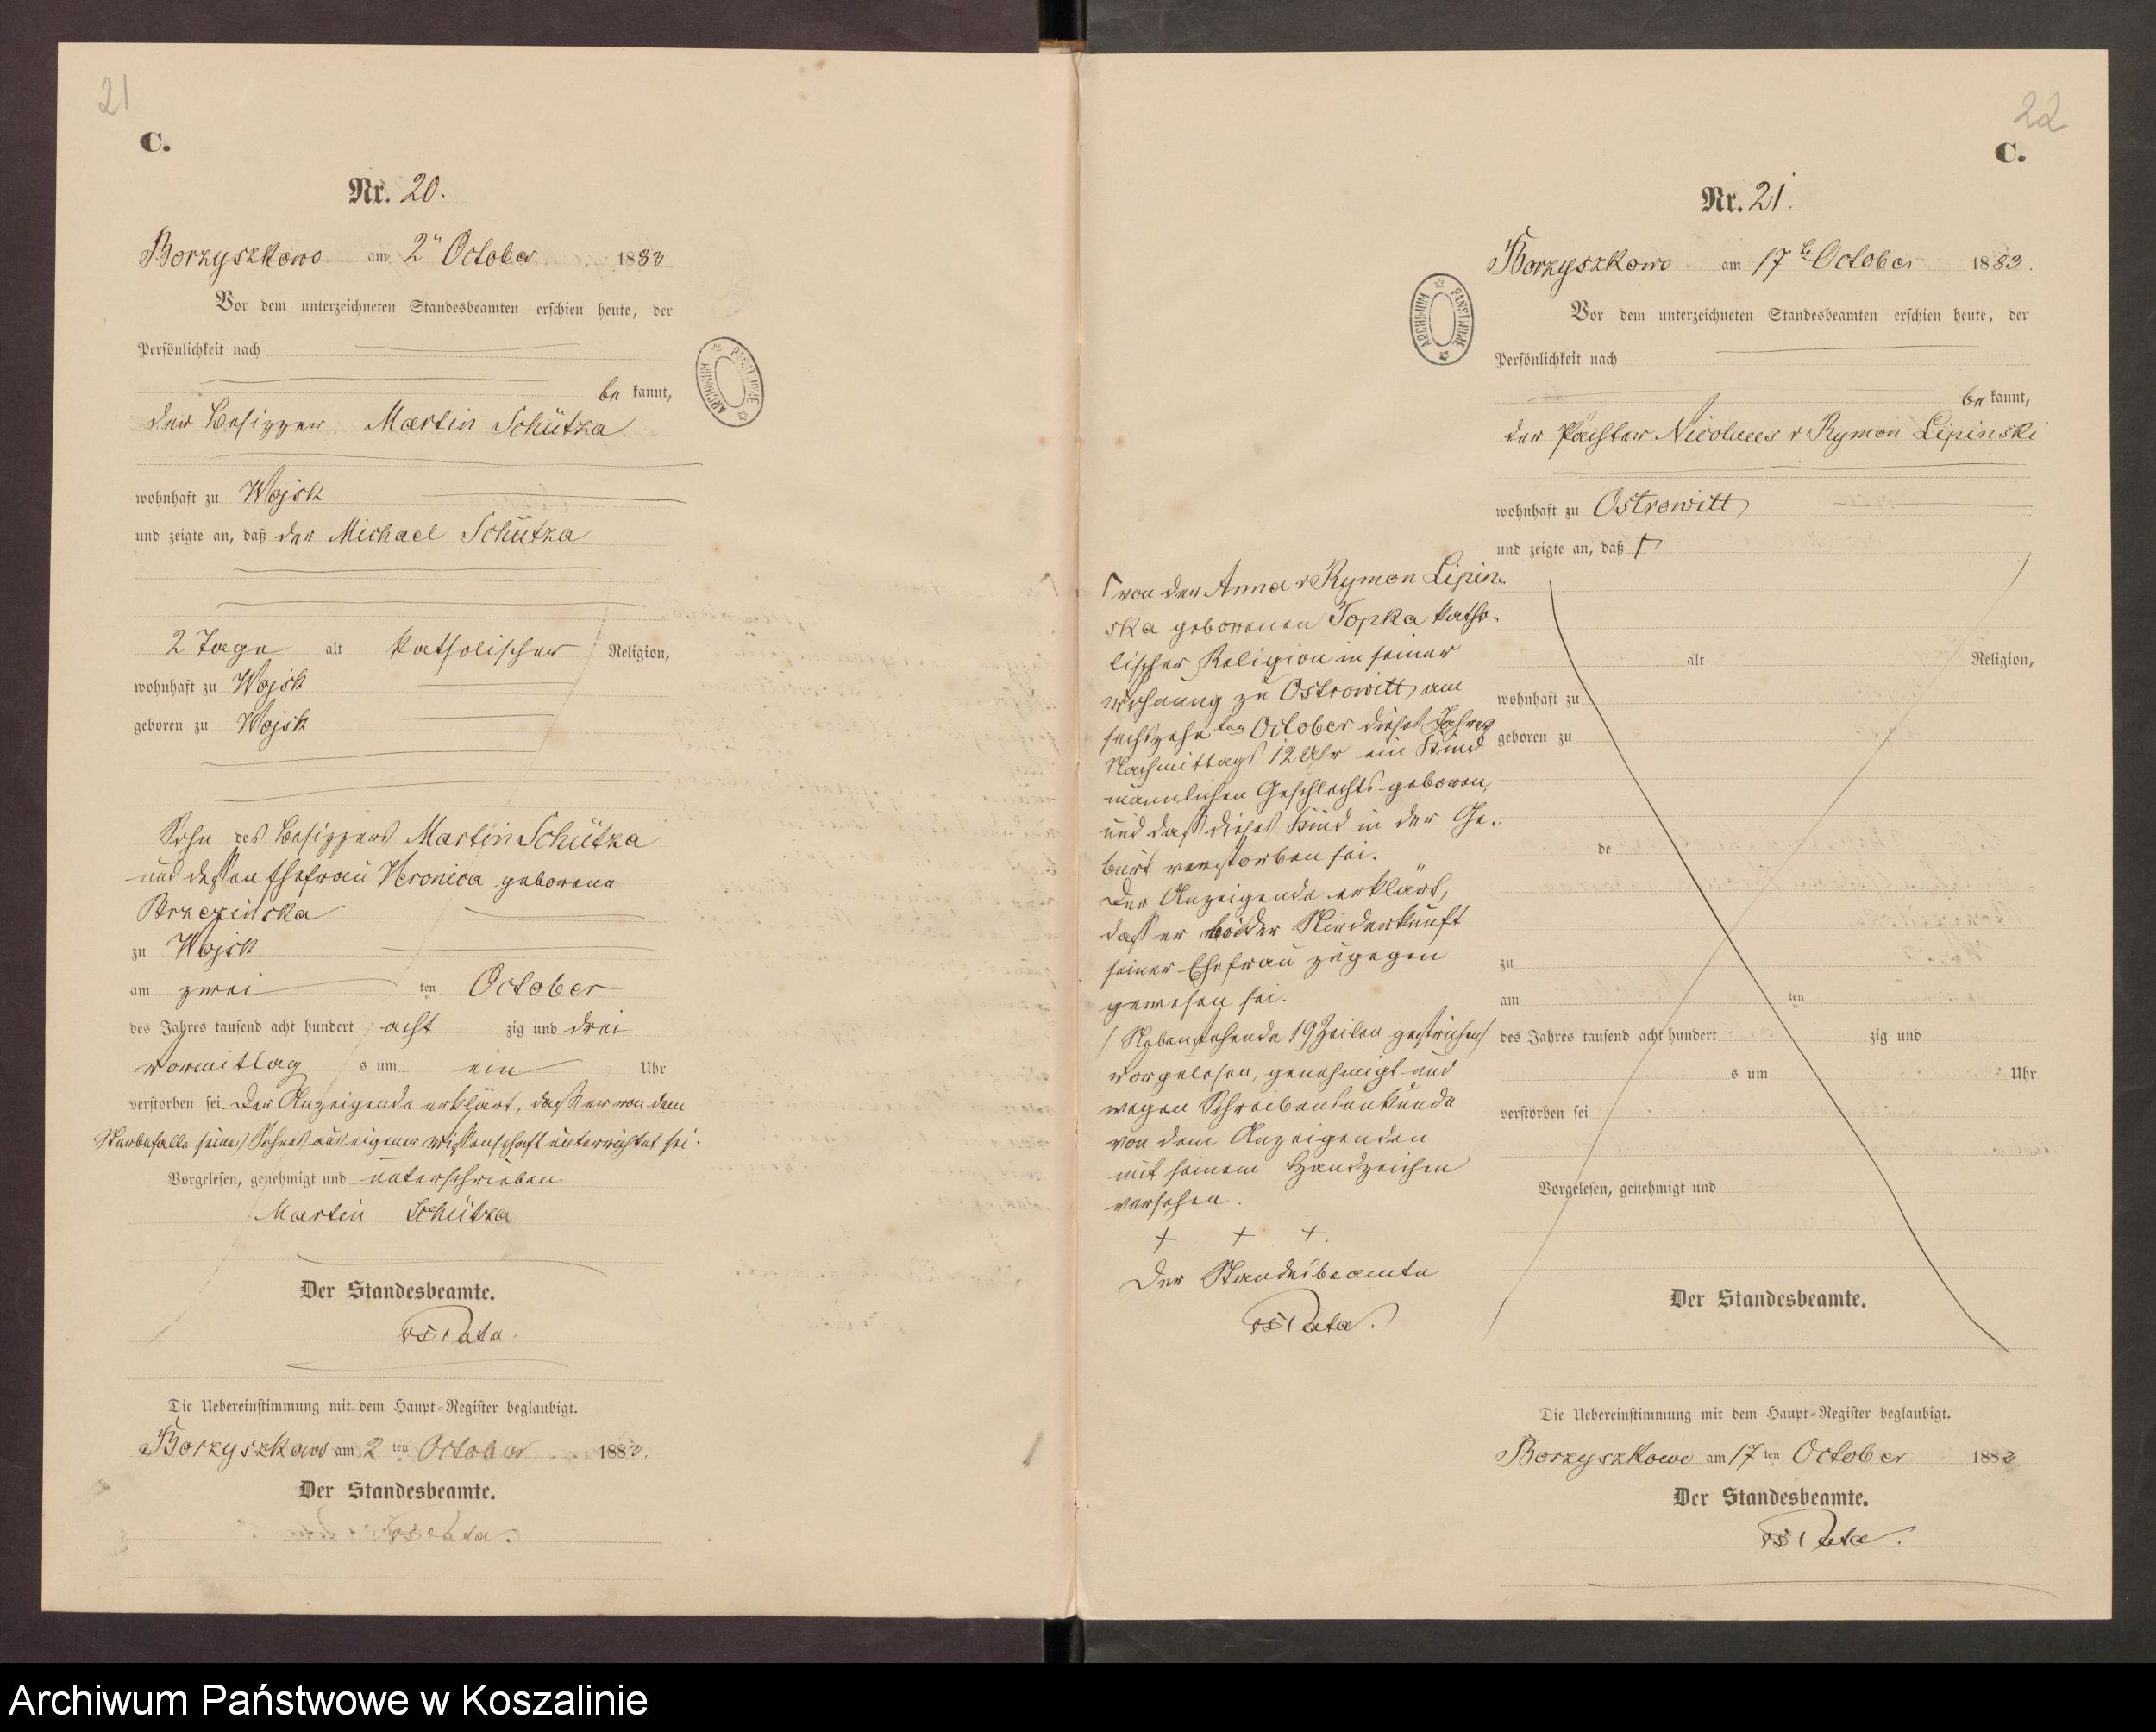 21
C.
Nr. 20.
Borzyszkowo am 2ⁿ October 1883
Vor dem unterzeichneten Standesbeamten erschien heute, der
Persönlichkeit nach
be kannt,
der Besitzer Martin Schützka
wohnhaft zu Wojsk
und zeigte an, daß der Michael Schützka
2 Tage alt katholischer Religion,
wohnhaft zu Wojsk
geboren zu Wojsk
Sohn des Besitzers Martin Schützka
und dessen Ehefrau Veronica geborene
Brzezinska
zu Wojsk
am zwei ten October
des Jahres tausend acht hundert acht zig und drei
vormittag s um ein Uhr
verstorben sei. Der Anzeigende erklärt, daß er von dem
Sterbefalle seines Sohnes aus eigener Wissenschaft unterrichtet sei.
Vorgelesen, genehmigt und unterschrieben.
Martin Schützka
Der Standesbeamte.
Die Uebereinstimmung mit dem Haupt-Register beglaubigt.
Borzyszkowo am 2 ten October 1883.
Der Standesbeamte.
ARCHIWUM PAŃSTWOWE
22
C.
Nr. 21.
Borzyszkowo am 17 te October 1883.
Vor dem unterzeichneten Standesbeamten erschien heute, der
Persönlichkeit nach
be kannt,
der Pächter Nicolaus v Rymon Lipinski
wohnhaft zu Ostrowitt
und zeigte an, daß
von der Anna v Rymon Lipin-
ska geborenen Topka katho-
lischer Religion in seiner
Wohnung zu Ostrowitt am
sechszehn ten October dieses Jahres
Nachmittags 12 Uhr ein Kind
männlichen Geschlechts geboren,
und daß dieses Kind in der Ge-
burt verstorben sei.
Der Anzeigende erklärt,
daß er bei der Niederkunft
seiner Ehefrau zugegen
gewesen sei.
/ Nebenstehende 19 Zeilen gestrichen /
vorgelesen, genehmigt und
wegen Schreibensunkunde
von dem Anzeigenden
mit seinem Handzeichen
versehen.
+ + +.
Der Standesbeamte
alt Religion,
wohnhaft zu
geboren zu
de
zu
am ten
des Jahres tausend acht hundert zig und
s um Uhr
verstorben sei
Vorgelesen, genehmigt und
Der Standesbeamte.
Die Uebereinstimmung mit dem Haupt-Register beglaubigt.
Borzyszkowo am 17 ten October 1883
Der Standesbeamte.
ARCHIWUM PAŃSTWOWE
Archiwum Państwowe w Koszalinie